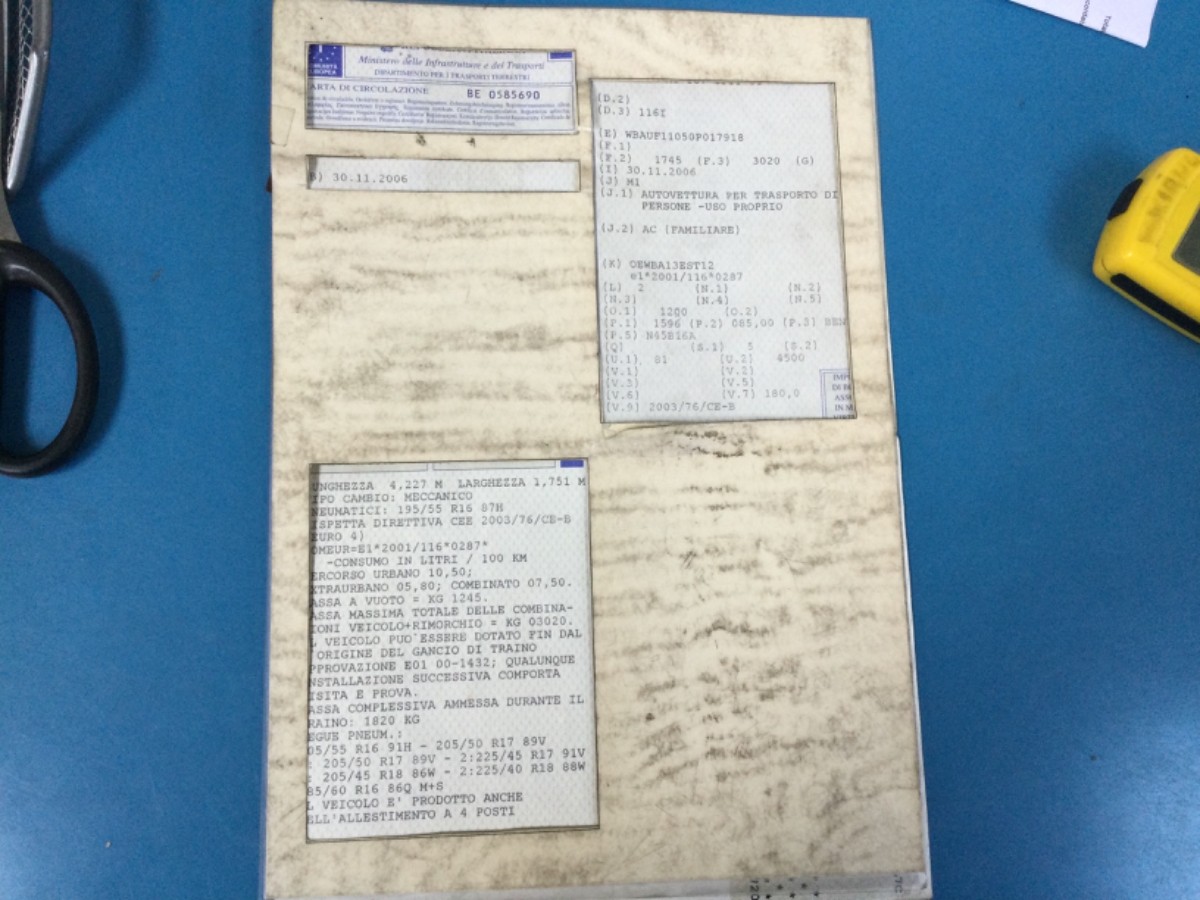 Ministero delle Infrastrutture e dei Trasporti
DIPARTIMENTO PER I TRASPORTI TERRESTRI
ARTA DI CIRCOLAZIONE BE 0585690
B) 30.11.2006
(D.2)
(D.3) 116I
(E) WBAUF11050P017918
(F.1)
(F.2) 1745 (F.3) 3020 (G)
(I) 30.11.2006
(J) M1
(J.1) AUTOVETTURA PER TRASPORTO DI
PERSONE -USO PROPRIO
(J.2) AC (FAMILIARE)
(K) OEWBA13EST12
e1*2001/116*0287
(L) 2 (N.1) (N.2)
(N.3) (N.4) (N.5)
(O.1) 1200 (O.2)
(P.1) 1596 (P.2) 085,00 (P.3) BEN
(P.5) N45B16A
(Q) (S.1) 5 (S.2)
(U.1) 81 (U.2) 4500
(V.1) (V.2)
(V.3) (V.5)
(V.6) (V.7) 180,0
(V.9) 2003/76/CE-B
IMP
DI B
ASS
IN M
UNGHEZZA 4,227 M LARGHEZZA 1,751 M
IPO CAMBIO: MECCANICO
NEUMATICI: 195/55 R16 87H
ISPETTA DIRETTIVA CEE 2003/76/CE-B
EURO 4)
OMEUR=E1*2001/116*0287*
-CONSUMO IN LITRI / 100 KM
ERCORSO URBANO 10,50;
XTRAURBANO 05,80; COMBINATO 07,50.
ASSA A VUOTO = KG 1245.
ASSA MASSIMA TOTALE DELLE COMBINA-
IONI VEICOLO+RIMORCHIO = KG 03020.
L VEICOLO PUO'ESSERE DOTATO FIN DAL
'ORIGINE DEL GANCIO DI TRAINO
PPROVAZIONE E01 00-1432; QUALUNQUE
NSTALLAZIONE SUCCESSIVA COMPORTA
ISITA E PROVA.
ASSA COMPLESSIVA AMMESSA DURANTE IL
RAINO: 1820 KG
EGUE PNEUM.:
05/55 R16 91H - 205/50 R17 89V
: 205/50 R17 89V - 2:225/45 R17 91V
: 205/45 R18 86W - 2:225/40 R18 88W
85/60 R16 86Q M+S
L VEICOLO E' PRODOTTO ANCHE
ELL'ALLESTIMENTO A 4 POSTI